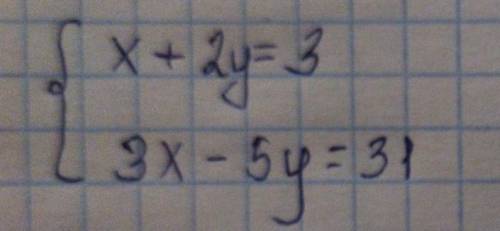 x + 2y = 3
3x - 5y = 31